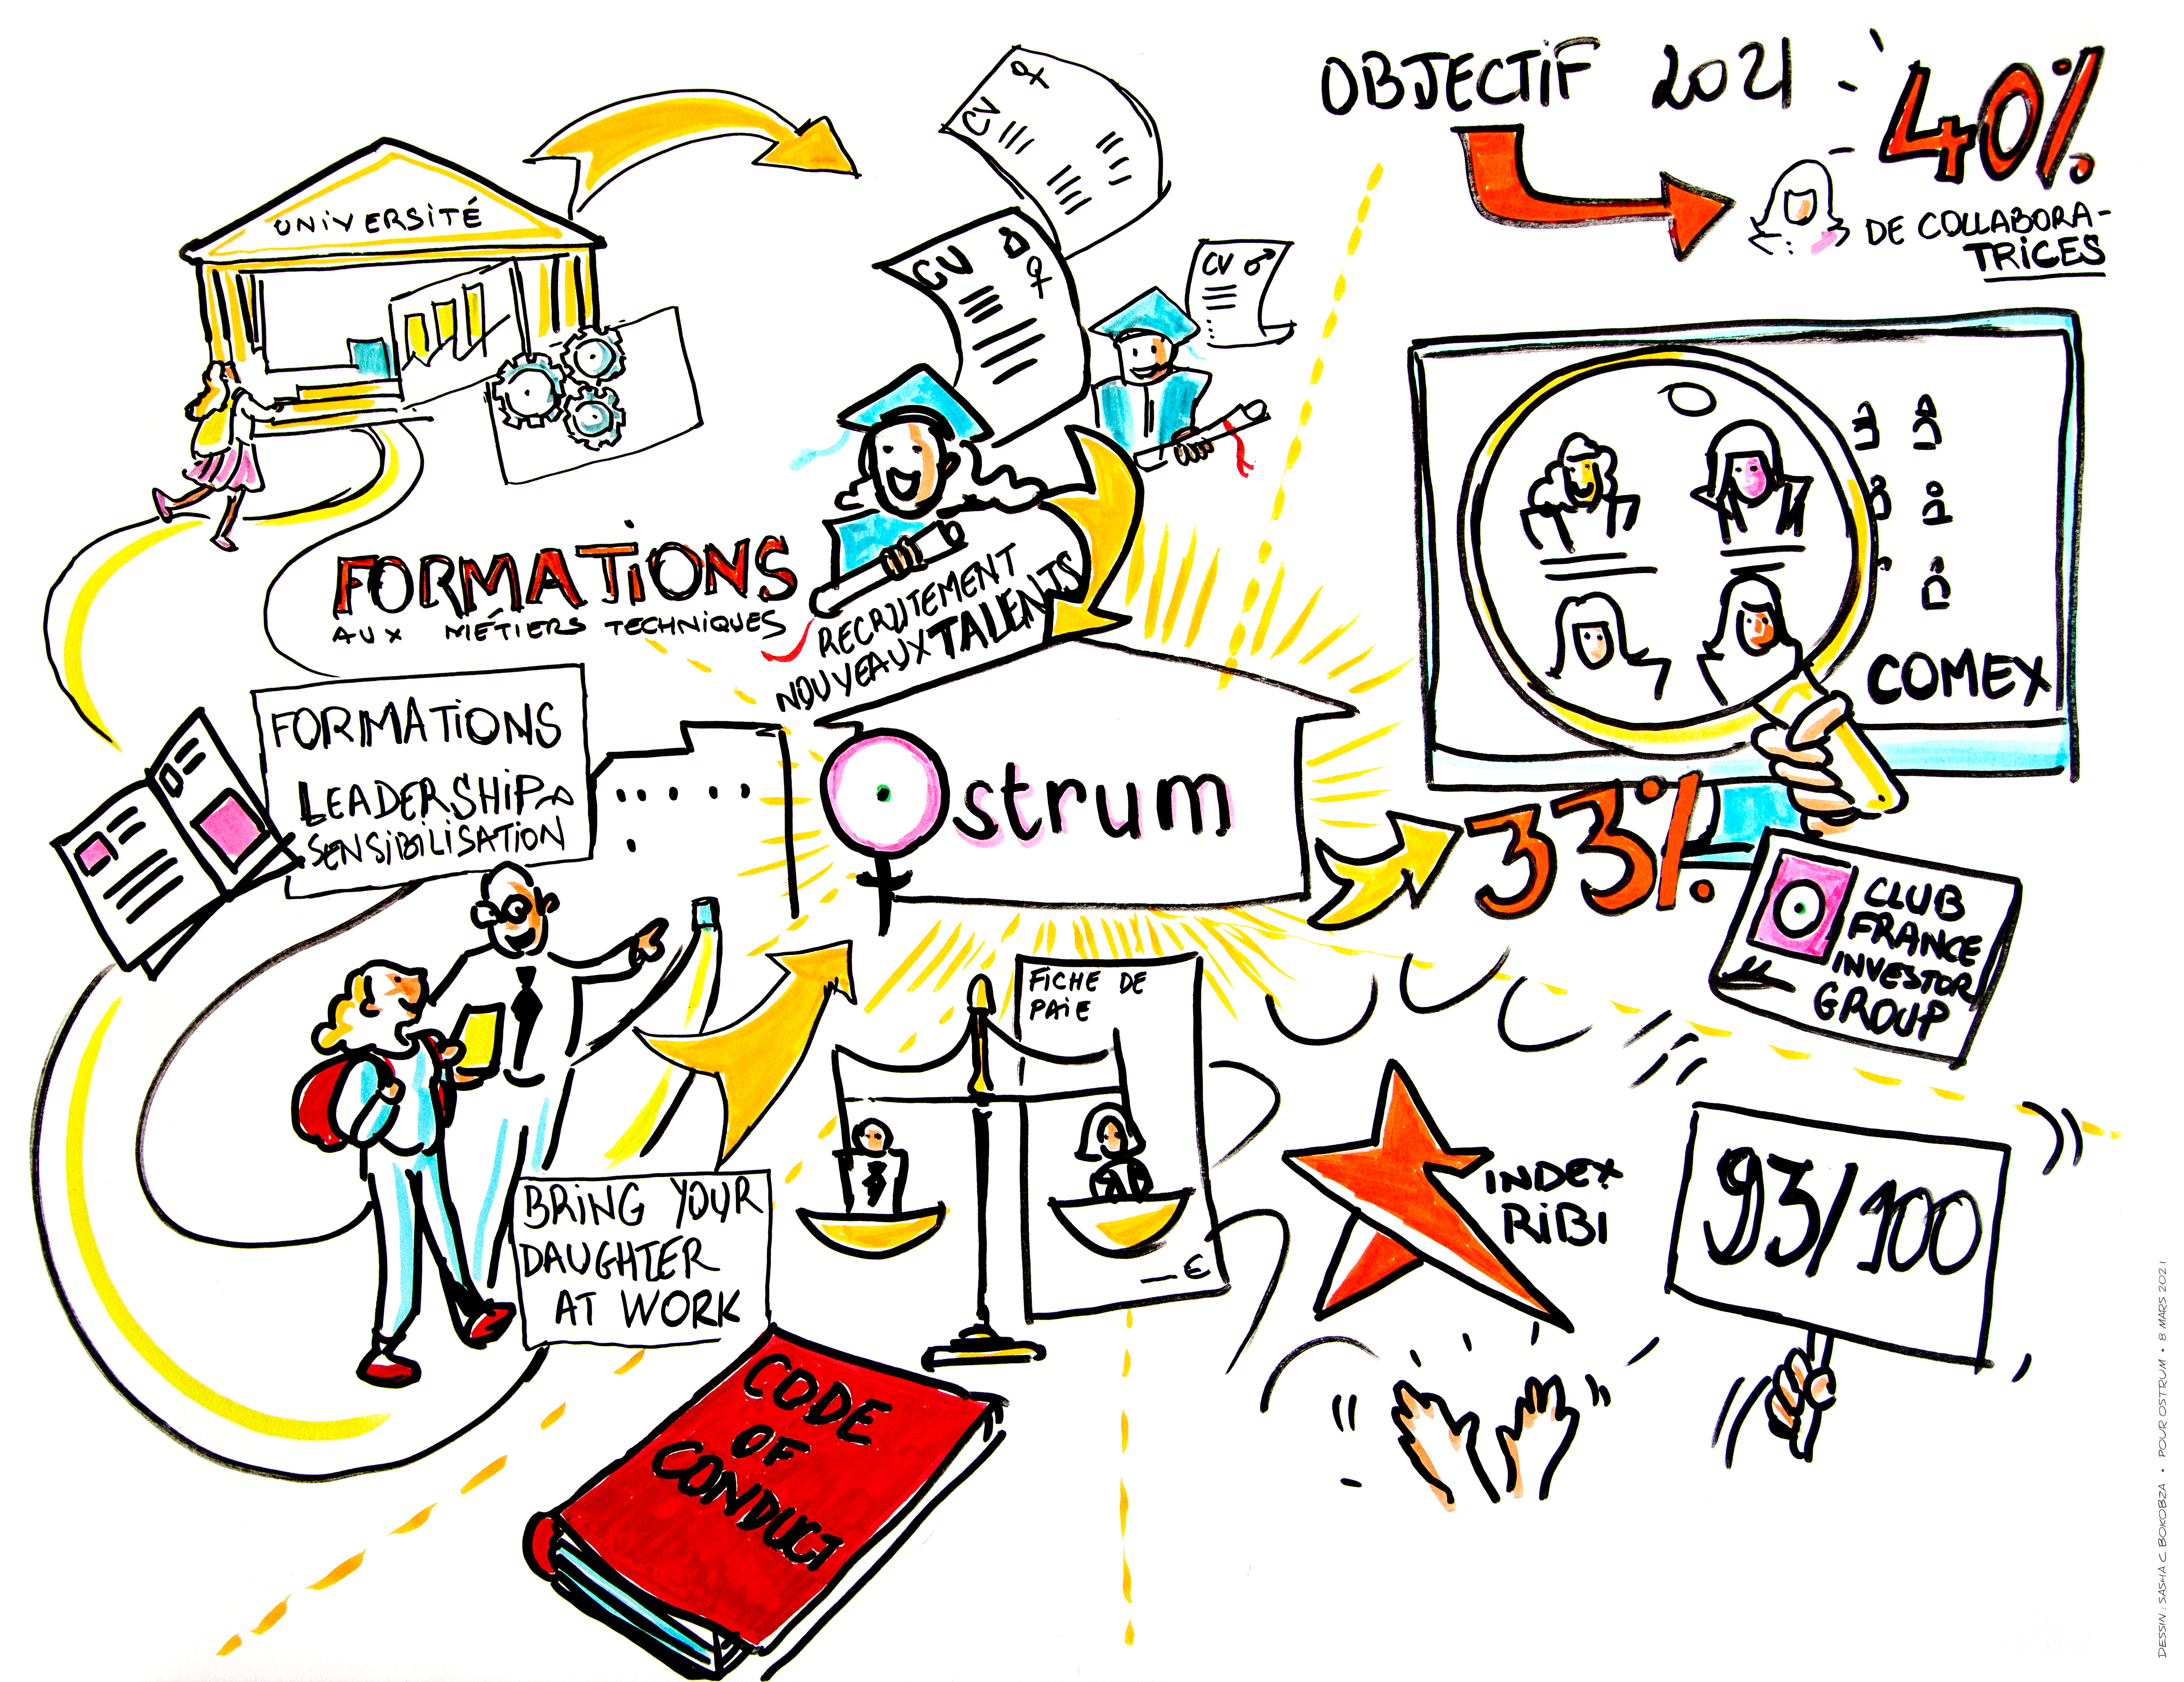 OBJECTIF 2021
40%
DE COLLABORA-
TRICES
UNIVERSITÉ
CV ♀
CV ♀
CV ♂
FORMATIONS
AUX MÉTIERS TECHNIQUES
RECRUTEMENT
NOUVEAUX TALENTS
FORMATIONS
LEADERSHIP
SENSIBILISATION
Ostrum
COMEX
33%
CLUB
FRANCE
INVESTOR
GROUP
FICHE DE
PAIE
€
BRING YOUR
DAUGHTER
AT WORK
INDEX
RIBI
93/100
CODE
OF
CONDUCT
DESSIN : SASHA C. BOKOBZA • POUR OSTRUM • 8 MARS 2021